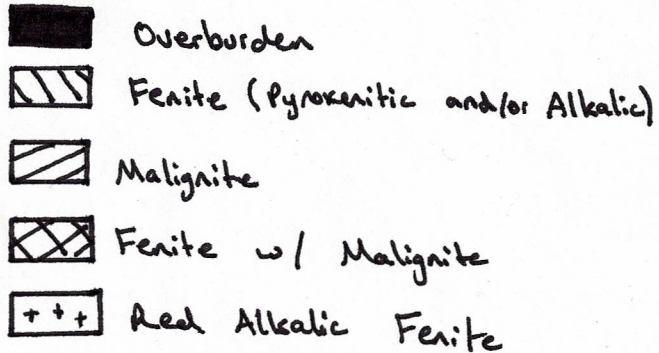 Overburden
Fenite (Pyroxenitic and/or Alkalic)
Malignite
Fenite w/ Malignite
Red Alkalic Fenite